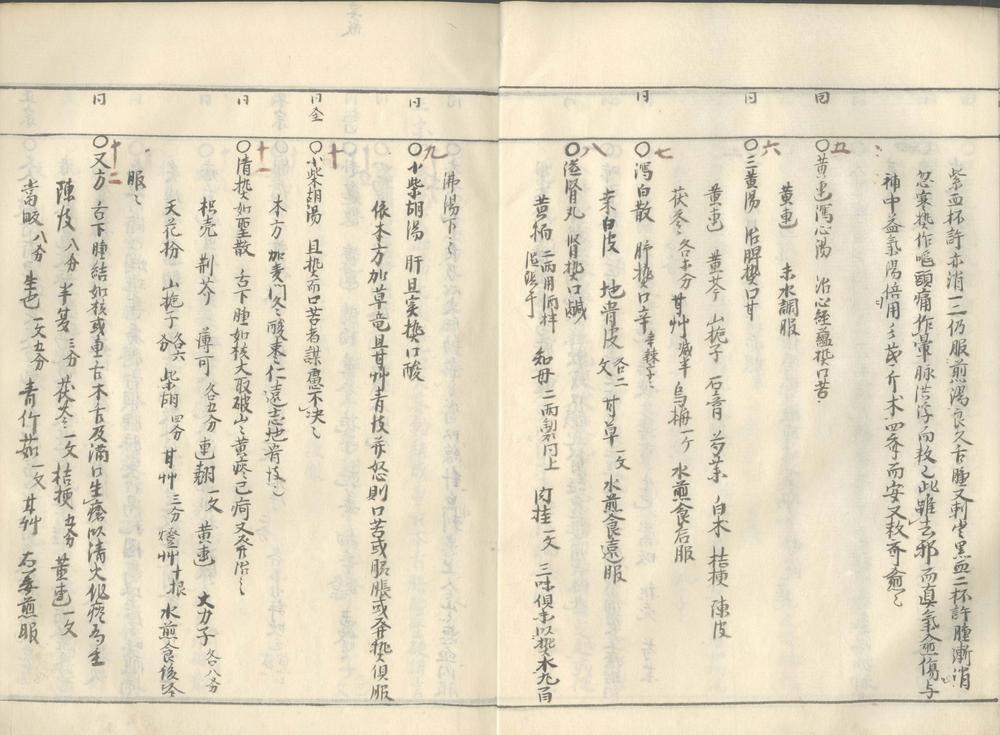 紫血杯許亦消一二仍服煎湯良久舌腫又刺出黑血二杯許腫漸消
忽寒热作嘔頭痛作暈脉浮而数此雖去邪而真氣愈傷与
補中益氣湯倍用参芪斤术四斉而安又数斉愈
五
同
〇黄連瀉心湯 治心経蘊热口苦
黄連 末水調服
六
同
〇三黄湯 治脾热口甘
黄連 黄芩 山梔子 石膏 芍薬 白术 桔梗 陳皮
茯苓各等分 甘艸减半 烏梅一ケ 水煎食后服
七
同
〇瀉白散 肝热口辛
桑白皮 地骨皮各二文 甘草一文 水煎食遠服
八
〇滋腎丸 腎热口鹹
黄栢二両用酒拌 知母二両製同上 肉桂一文 三味倶末以热水丸百
沸湯下
九
同
〇小柴胡湯 肝胆实热口酸
依本方加草竜胆甘艸青皮亦怒則口苦或脇脹或発热倶服
十
同仝
〇小柴胡湯 胆热而口苦者謀慮不决
本方加麦門冬酸枣仁遠志地骨皮
十一
同
〇清热如聖散 舌下腫如核大取破出黄痰已痊又発治
枳壳 荆芥 薄可各五分 連翹一文 黄連 大力子各八分
天花粉 山梔子各六分 柴胡四分 甘艸三分 燈艸十根 水煎食後冷
服
十二
同
〇又方 舌下腫結如核或重舌木舌及滿口生瘡以清火化痰為主
陳皮八分 半夏三分 茯苓一文 桔梗五分 黄連一文
當皈八分 生地一文五分 青竹茹一文 甘艸 右姜煎服